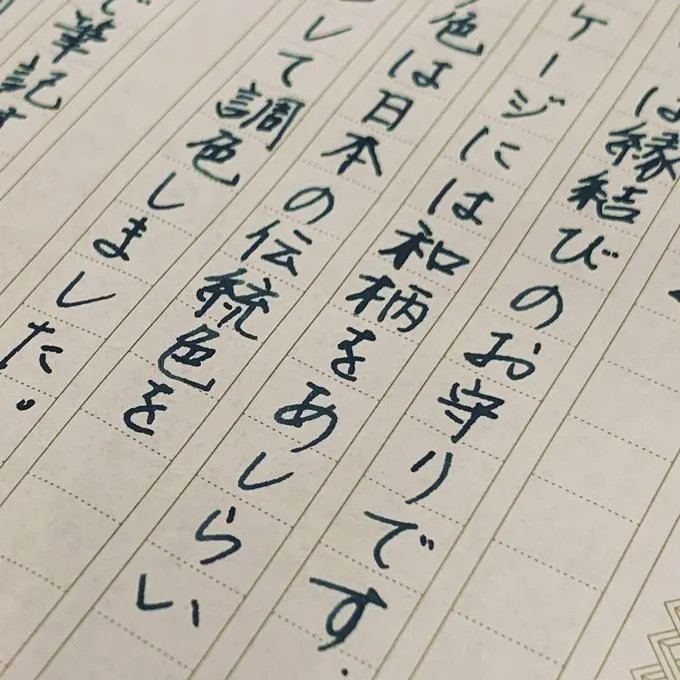 は縁結びのお守りです.
ケージには和柄をあしらい
色は日本の伝統色を
して調色しました。
で筆記